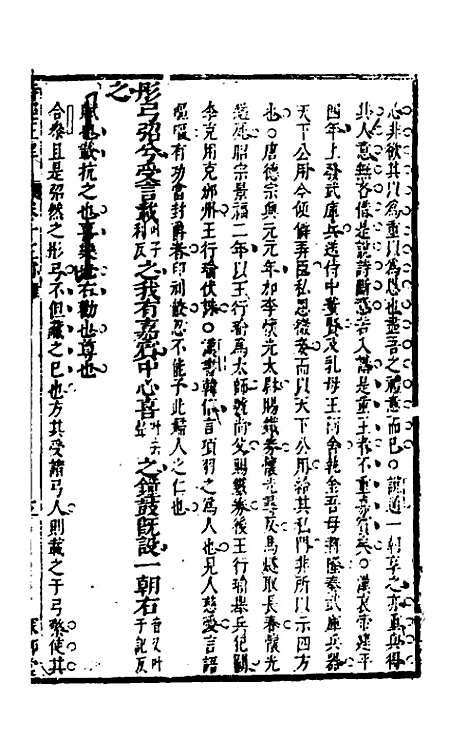 心非欲其以為重以為恩也盡吾之禮意而已○說道一朝享之亦重兵得
其人意無吝惜是說詩斷惑若入講是重王者不重嘉賓矣○漢哀帝建平
四年上發武庫兵送侍中董賢及乳母王阿舍執金吾毋將隆奏武庫兵器
天下公用今便僻弄臣私恩微妾而以天下公用給其私門非所以示四方
也○唐德宗興元元年加李懷光太尉賜鐵券懷光怒反馬燧取長春懷光
縊死昭宗景福二年以王行瑜為太師號尚父賜鐵券後王行瑜舉兵犯闕
李克用克邠州王行瑜伏誅○漢書韓信言項羽之為人也見人慈愛言語
嘔嘔有功當封爵者印刓敝忍不能予此婦人之仁也
彤弓弨兮受言載叶子利反之我有嘉賓中心喜叶去聲之鐘鼓既設一朝右音又叶于記反
之
賦也載抗之也喜樂也右勸也尊也
合參且是弨然之彤弓不但藏之已也方其受諸弓人則載之于弓檠使其